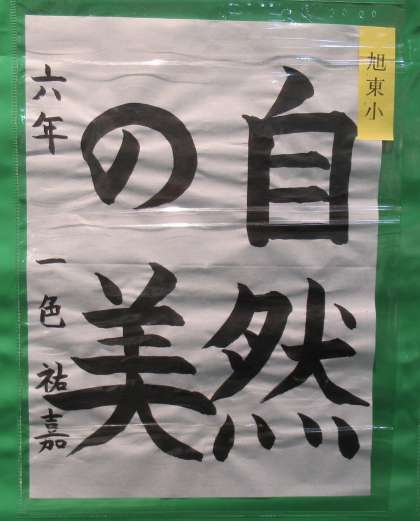 旭東小
自然
の美
六年 一色 祐嘉